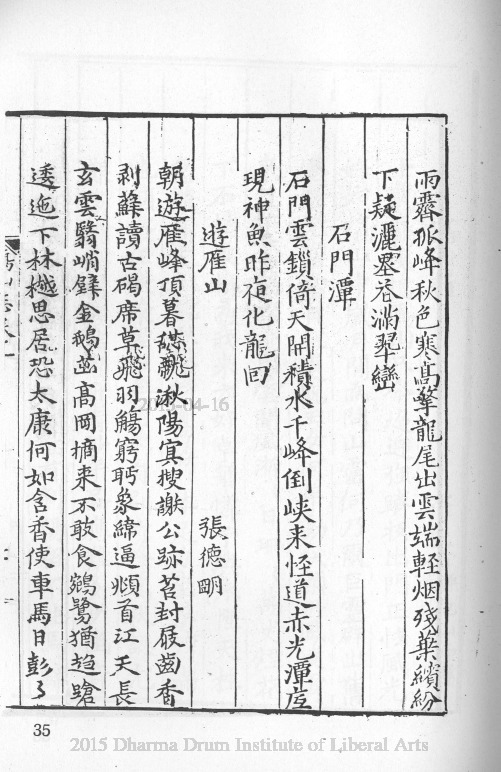 雨霽孤峰秋色寒高擎龍尾出雲端輕烟殘葉繽紛
下疑灑墨谷滿翠巒
石門潭
石門雲鎖倚天開積水千峰倒峽来怪道赤光潭底
現神魚昨夜化龍回
遊雁山 張德明
朝遊雁峰頂暮 湫陽寞搜謝公跡苔封屐齒香
剥蘚讀古碣席草飛羽觴窮眄衆締逼頫首江天長
玄雲翳峭 金鵝 高岡摘来不敢食鵷鷺猶趋蹌
逶迤下林樾思居恐太康何如含香使車馬日彭々
35
2015-04-16
2015 Dharma Drum Institute of Liberal Arts